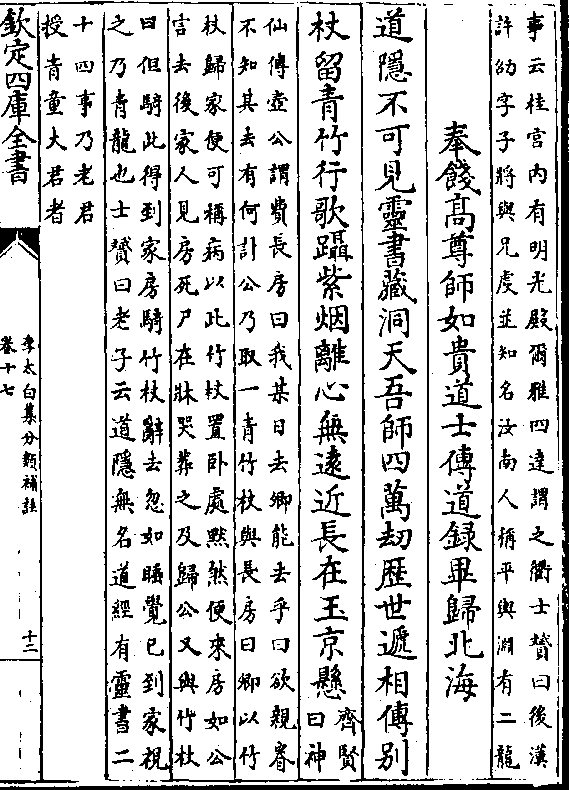 事云桂宫内有明光殿爾雅四達謂之衢士贇曰後漢
許劭字子將與兄虔並知名汝南人稱平輿淵有二龍
奉餞髙尊師如貴道士傳道録畢歸北海
道隱不可見靈書藏洞天吾師四萬刼歷世遞相傳别
杖留青竹行歌躡紫烟離心無逺近長在玉京懸
齊賢
曰神
仙傳壺公謂費長房曰我某日去卿能去乎曰欲親眷
不知其去有何計公乃取一青竹杖與長房曰卿以竹
杖歸家便可稱病以此竹杖置卧處黙然便來房如公
言去後家人見房死尸在牀哭葬之及歸公又與竹杖
曰但騎此得到家房騎竹杖辭去忽如睡覺已到家視
之乃青龍也士贇曰老子云道隱無名道經有靈書二
十四事乃老君
授青童大君者
欽定四庫全書
李太白集分類補註
卷十七
十二